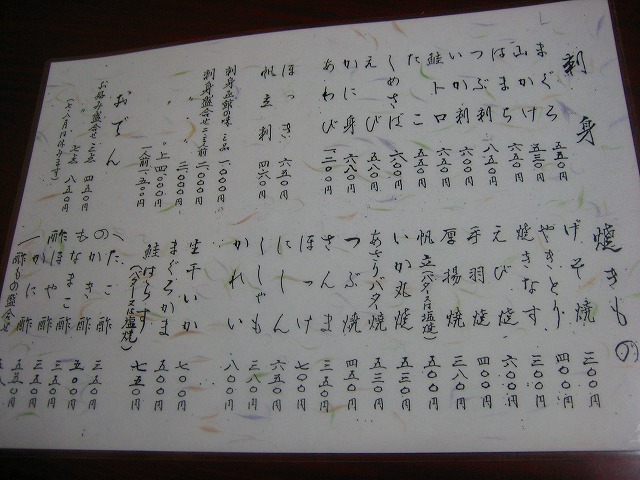 刺身
まぐろ 五五〇円
山かけ 五三〇円
はまち 六〇〇円
つぶ刺 八五〇円
いか刺 六五〇円
鮭トロ 六〇〇円
たこ 五五〇円
しめさば 六〇〇円
えび 五八〇円
かに身 六八〇円
あわび 一、二〇〇円
ほっき 六五〇円
帆立刺 四六〇円
刺身 二品 一、〇〇〇円
刺身盛合せ 二、〇〇〇円
〃 三、〇〇〇円
〃 上 四、〇〇〇円
一人前 一、五〇〇円
おでん
お好み盛合せ 三点 四五〇円
七点 八五〇円
焼きもの
げそ焼 三〇〇円
やきとり 四〇〇円
焼きなす 三〇〇円
えび焼 六〇〇円
手羽焼 四〇〇円
厚揚焼 三八〇円
帆立(バター又は塩焼) 五〇〇円
いか丸焼 五五〇円
あさりバタ焼 五三〇円
つぶ焼 四五〇円
さんま 三五〇円
ほっけ 七〇〇円
にしん 六五〇円
ししゃも 三八〇円
かれい 八〇〇円
生干いか 七〇〇円
まぐろかま 五〇〇円
鮭はらす(バター又は塩焼) 七五〇円
たこ酢 三五〇円
かき酢 五〇〇円
なまこ酢 五五〇円
ほや酢 三五〇円
かに酢 五五〇円
酢もの盛合せ